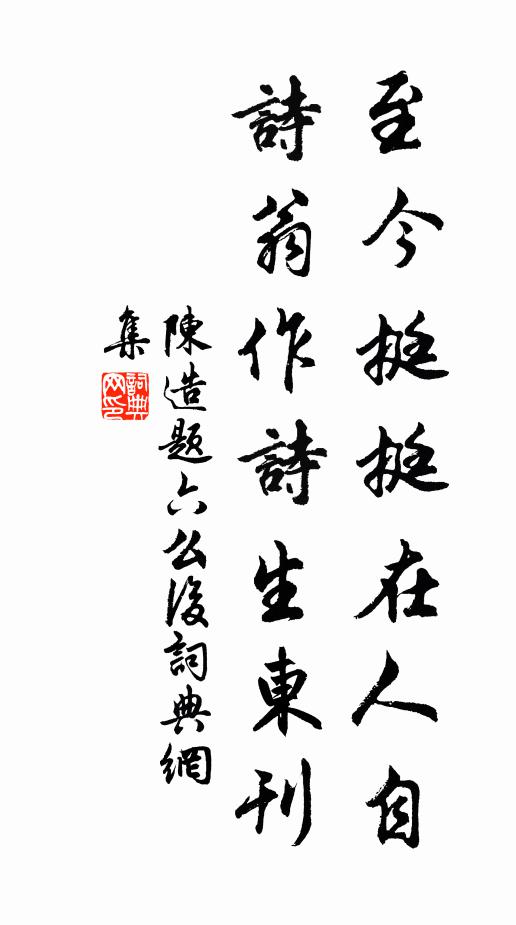 至今挺挺在人自
詩翁作詩生東刊
陳造題六么後詞典網
集
詞典
网印